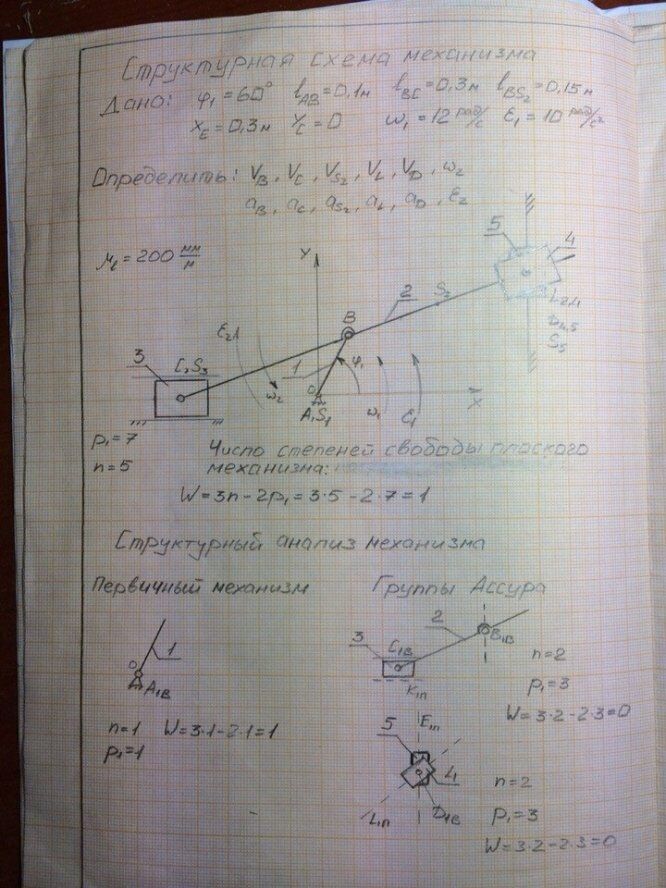 Структурная схема механизма
Дано: φ₁=60° l_AB=0,1м l_BC=0,3м l_BS₂=0,15м
X_E=0,3м Y_C=0 ω₁=12 рад/с ε₁=10 рад/с²
Определить: V_B, V_C, V_S₂, V_L, V_D, ω₂
a_B, a_C, a_S₂, a_L, a_D, ε₂
μ_l=200 мм/м
Y
5
4
2
S₂
L₂,₄
D₄,₅
S₅
B
ε₂₁
3
C,S₃
1
φ₁
ω₂
0
A,S₁
ω₁
ε₁
X
p₁=7
n=5
Число степеней свободы плоского
механизма:
W=3n-2p₁=3·5-2·7=1
Структурный анализ механизма
Первичный механизм
Группы Ассура
1
0
A₁в
n=1 W=3·1-2·1=1
p₁=1
2
3
C₁в
B₁в
K₁п
n=2
p₁=3
W=3·2-2·3=0
5
E₁п
4
L₁п
D₁в
n=2
p₁=3
W=3·2-2·3=0